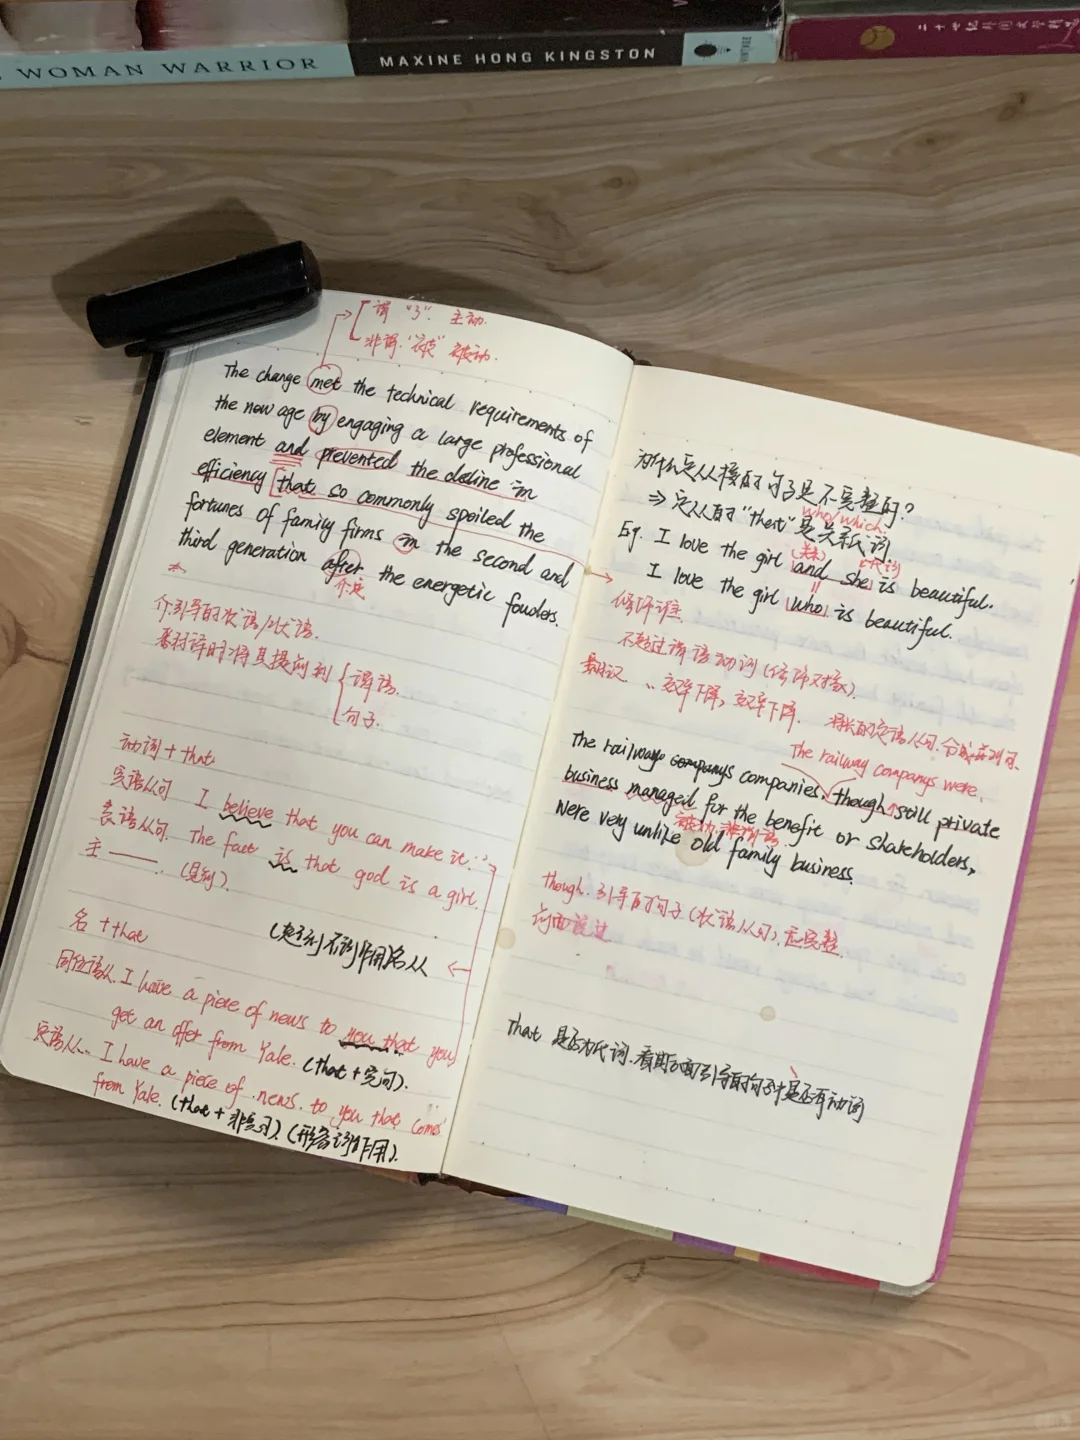 WOMAN WARRIOR
MAXINE HONG KINGSTON
VINTAGE
二十世纪外国文学
谓 "了". 主动.
非谓. "被" 被动.
The change met the technical requirements of
the new age by engaging a large professional
element and prevented the decline in
efficiency that so commonly spoiled the
fortunes of family firms in the second and
third generation after the energetic founders.
介引导的次语/状语.
翻译时将其提前到
谓语.
句子.
动词 + that
宾语从句 I believe that you can make it.
表语从句. The fact is that god is a girl.
主
名 + that
(起到名词作用名从
同位语从. I have a piece of news to you that you
get an offer from Yale. (that + 完句).
定语从. I have a piece of news to you that comes
from Yale. (that + 非完句). (形容词作用).
为什么定从接的句子是不完整的?
who/which
⇒ 定从的 "that" 是关系词
(关系) 代词
Eg. I love the girl and she is beautiful.
I love the girl who is beautiful.
修饰谁
不超过谓语动词 (修饰对象).
效率下降, 效率下降. 将长的定语从句. 分成并列句.
The railway companys were.
The railway companys companies, though still private
business managed for the benefit or shareholders,
被动. 非谓语
were very unlike old family business.
though. 引导的句子 (状语从句), 应完整.
前面说过
That 是否为代词. 看其后面引导的句子中是否有动词